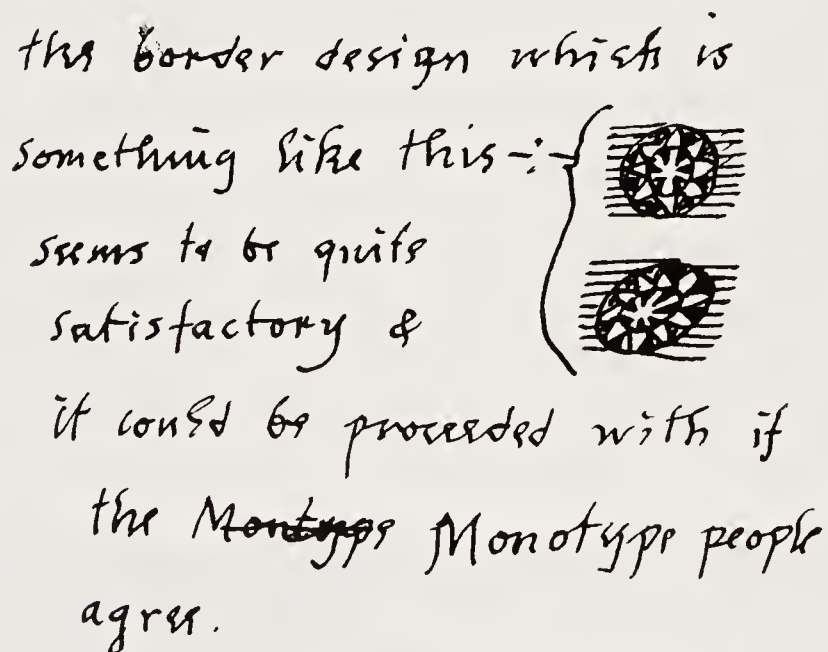 the border design which is
something like this -:-
seems to be quite
satisfactory &
it could be proceeded with if
the Montype Monotype people
agree.